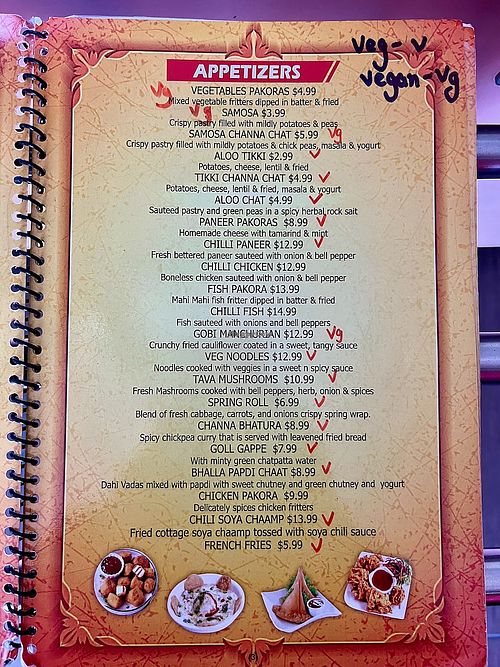 veg - v
vegan - vg
APPETIZERS
VEGETABLES PAKORAS $4.99
vg
Mixed vegetable fritters dipped in batter & fried
vg
SAMOSA $3.99
Crispy pastry filled with mildly potatoes & peas
SAMOSA CHANNA CHAT $5.99 vg
Crispy pastry filled with mildly potatoes & chick peas, masala & yogurt
ALOO TIKKI $2.99 v
Potatoes, cheese, lentil & fried
TIKKI CHANNA CHAT $4.99 v
Potatoes, cheese, lentil & fried, masala & yogurt
ALOO CHAT $4.99 v
Sauteed pastry and green peas in a spicy herbal rock salt
PANEER PAKORAS $8.99 v
Homemade cheese with tamarind & mint
CHILLI PANEER $12.99 v
Fresh bettered paneer sauteed with onion & bell pepper
CHILLI CHICKEN $12.99
Boneless chicken sauteed with onion & bell pepper
FISH PAKORA $13.99
Mahi Mahi fish fritter dipped in batter & fried
CHILLI FISH $14.99
Fish sauteed with onions and bell peppers
GOBI MANCHURIAN $12.99 vg
Crunchy fried cauliflower coated in a sweet, tangy sauce
VEG NOODLES $12.99 v
Noodles cooked with veggies in a sweet n spicy sauce
TAVA MUSHROOMS $10.99 v
Fresh Mashrooms cooked with bell peppers, herb, onion & spices
SPRING ROLL $6.99 v
Blend of fresh cabbage, carrots, and onions crispy spring wrap.
CHANNA BHATURA $8.99 v
Spicy chickpea curry that is served with leavened fried bread
GOLL GAPPE $7.99 v
With minty green chatpatta water
BHALLA PAPDI CHAAT $8.99 v
Dahl Vadas mixed with papdi with sweet chutney and green chutney and yogurt
CHICKEN PAKORA $9.99
Delicately spices chicken fritters
CHILI SOYA CHAAMP $13.99 v
Fried cottage soya chaamp tossed with soya chili sauce
FRENCH FRIES $5.99 v